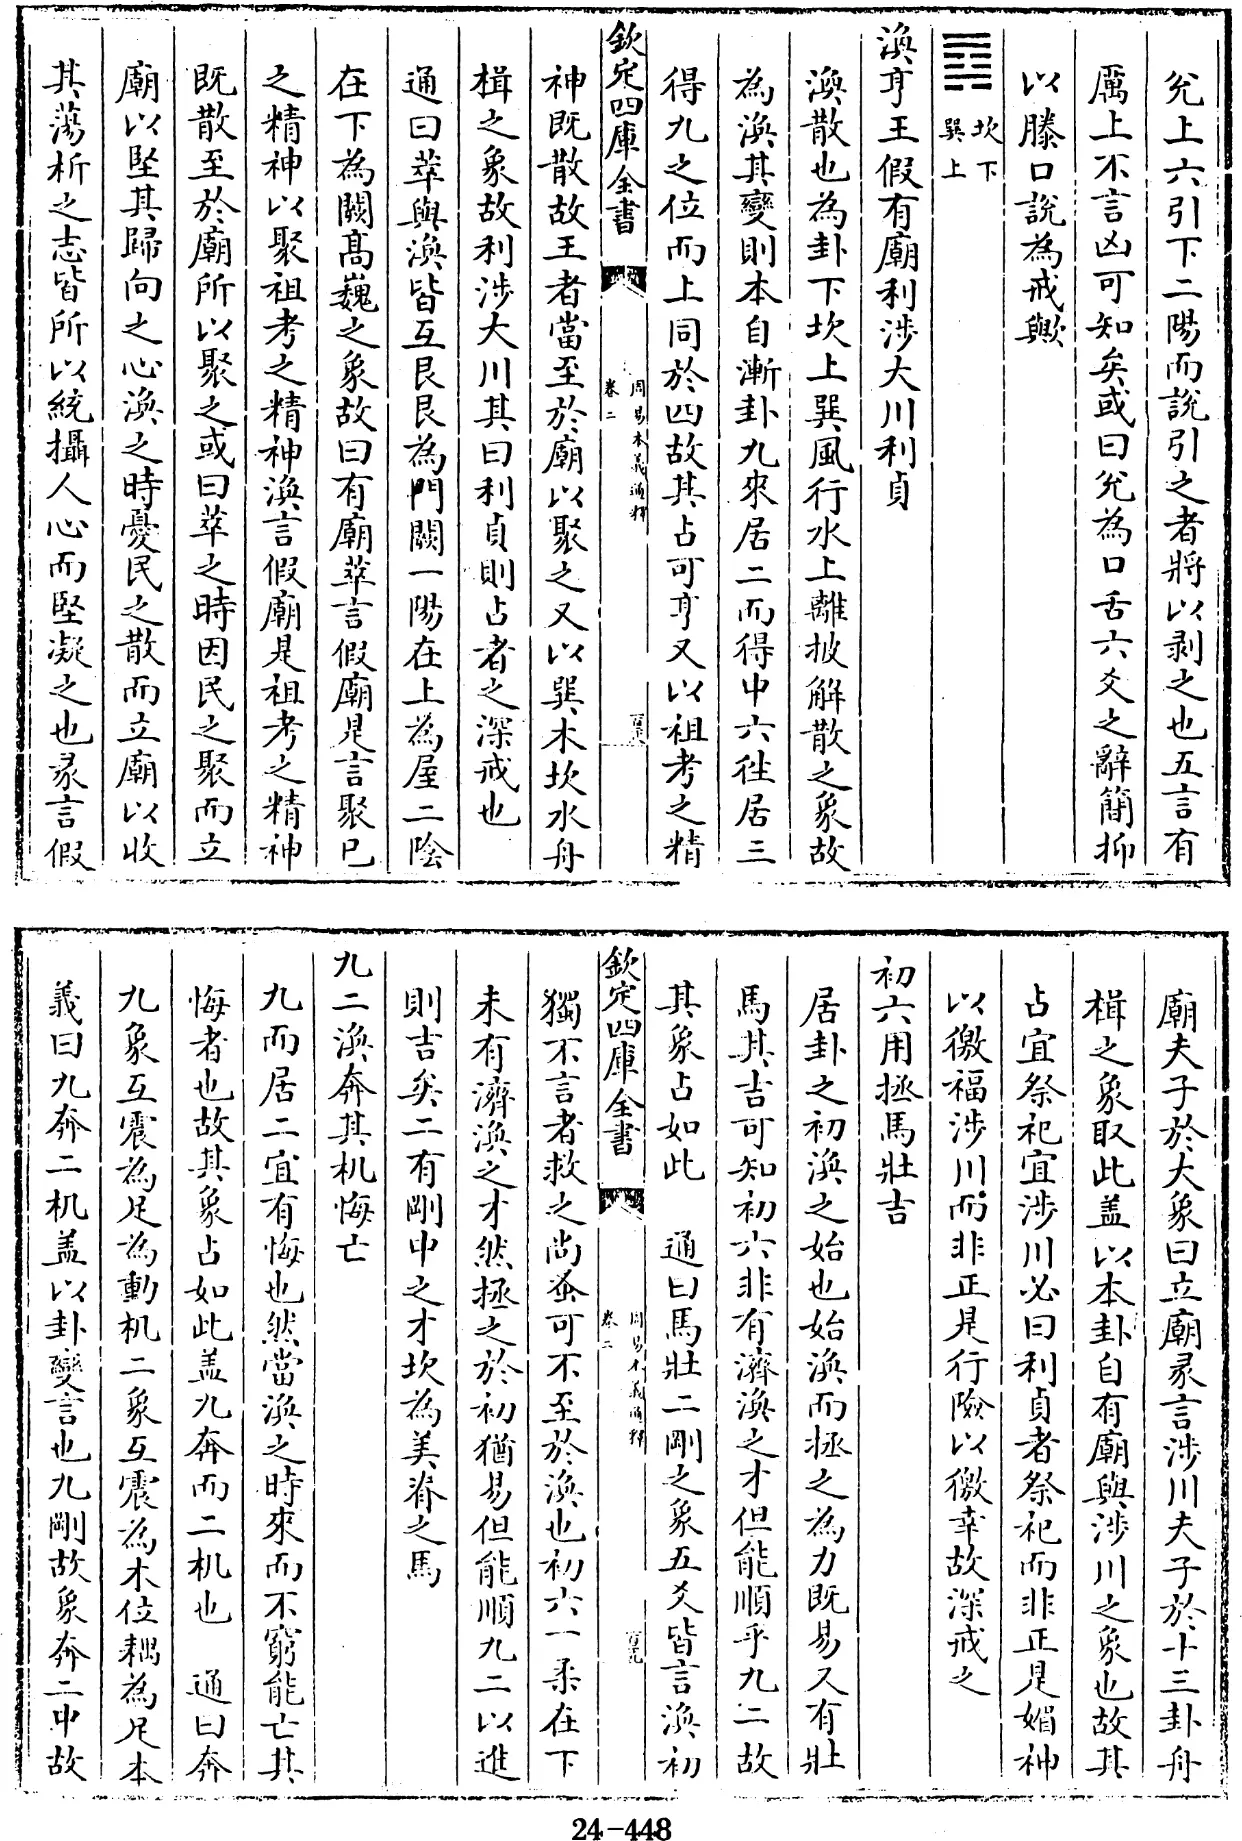 兊上六引下二陽而說引之者將以剥之也五言有
厲上不言凶可知矣或曰兊為口舌六爻之辭簡抑
以滕口說為戒歟
坎下
巽上
渙亨王假有廟利涉大川利貞
渙散也為卦下坎上巽風行水上離披解散之象故
為渙其變則本自漸卦九來居二而得中六往居三
得九之位而上同於四故其占可亨又以祖考之精
欽定四庫全書
周易本義通釋
卷二
神既散故王者當至於廟以聚之又以巽木坎水舟
楫之象故利涉大川其曰利貞則占者之深戒也
通曰萃與渙皆互艮艮為門闕一陽在上為屋二陰
在下為闕髙巍之象故曰有廟萃言假廟是言聚已
之精神以聚祖考之精神渙言假廟是祖考之精神
既散至於廟所以聚之或曰萃之時因民之聚而立
廟以堅其歸向之心渙之時憂民之散而立廟以收
其蕩析之志皆所以統攝人心而堅凝之也彖言假
廟夫子於大象曰立廟彖言涉川夫子於十三卦舟
楫之象取此盖以本卦自有廟與涉川之象也故其
占宜祭祀宜涉川必曰利貞者祭祀而非正是媚神
以徼福涉川而非正是行險以徼幸故深戒之
初六用拯馬壯吉
居卦之初渙之始也始渙而拯之為力既易又有壯
馬其吉可知初六非有濟渙之才但能順乎九二故
其象占如此　通曰馬壯二剛之象五爻皆言渙初
欽定四庫全書
周易本義通釋
卷二
獨不言者救之尚蚤可不至於渙也初六一柔在下
未有濟渙之才然拯之於初猶易但能順九二以進
則吉矣二有剛中之才坎為美脊之馬
九二渙奔其机悔亡
九而居二宜有悔也然當渙之時來而不窮能亡其
悔者也故其象占如此盖九奔而二机也　通曰奔
九象互震為足為動机二象互震為木位耦為足本
義曰九奔二机盖以卦變言也九剛故象奔二中故
24-448